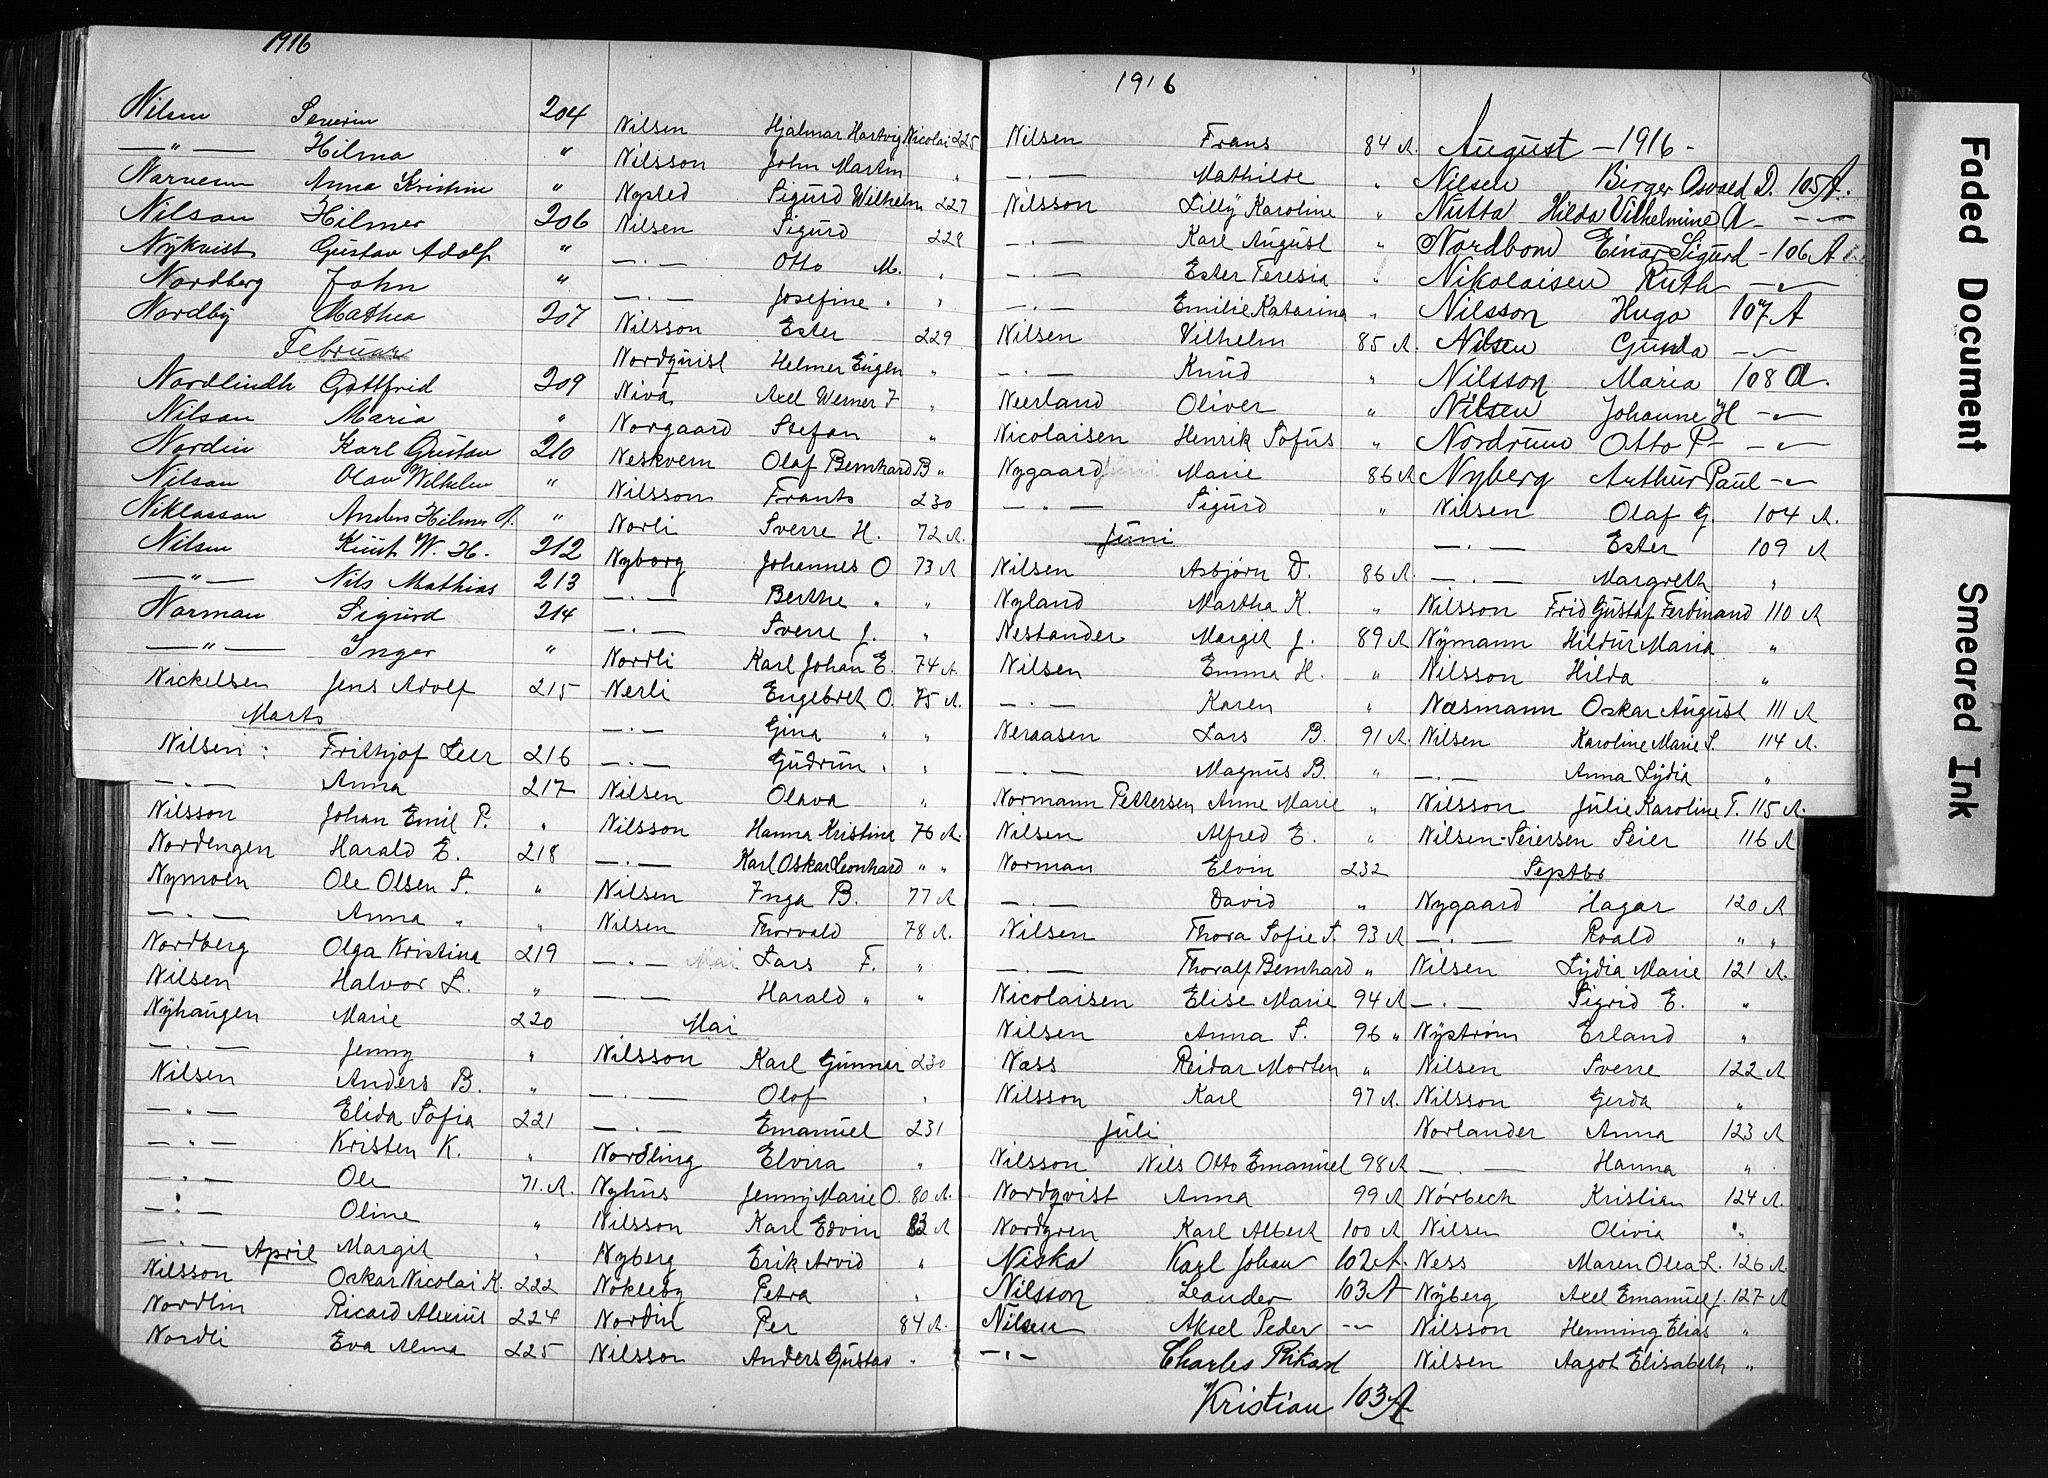 1916
Nilsen Severin 204
—"— Hilma "
Narvesen Anna Kristine "
Nilsson Hilmer 206
Nykvist Gustav Adolf "
Nordberg John "
Nordby Mathea 207
Februar
Nordlindh Gottfrid 209
Nilsson Maria "
Nordin Karl Gustav 210
Nilsen Olav Wilhelm "
Niklasson Anders Hilmer A. "
Nilsen Knut W. H. 212
—"— Nils Mathias 213
Norman Sigurd 214
—"— Inger "
Nickelsen Jens Adolf 215
Marts
Nilsen: Frithjof Leer 216
—.— Anna 217
Nilsson Johan Emil P. "
Nordengen Harald E. 218
Nymoen Ole Olsen S. "
—.— Anna " "
Nordberg Olga Kristina 219
Nilsen Halvor L. "
Nyhaugen Marie 220
—.— Jenny "
Nilsen Anders B. "
—"— Elida Sofia 221
—"— Kristen K. "
—.— Ole 71. A.
—.— Oline "
—.— Margit "
April
Nilsson Oskar Nicolai K. 222
Nordlin Ricard Alexius 224
Nordli Eva Alma 225
Nilsen Hjalmar Hartvig Nicolai 225
Nilsson John Martin "
Nysted Sigurd Wilhelm 227
Nilsen Sigurd 228
—.— Otto M. "
—.— Josefine " "
Nilsson Ester 229
Nordquist Helmer Eugen "
Niva Axel Werner F "
Norgaard Stefan "
Neskvern Olaf Bernhard B "
Nilsson Frants 230
Norli Sverre H. 72 A.
Nyborg Johannes O 73 A
—.— Berthe " "
—.— Sverre J. "
Nordli Karl Johan E. 74 A.
Nerli Engebret O. 75 A.
—.— Gina " "
—.— Gudrun " "
Nilsen Olava "
Nilsson Hanna Kristina 76 A.
—.— Karl Oskar Leonhard " "
Nilsen Inga B. 77 A
Nilsen Thorvald 78 A.
—.— Lars F. "
—.— Harald " "
Mai
Nilsson Karl Gunner 230
—.— Olof "
—.— Emanuel 231
Nordling Elvira "
Nyhus Jenny Marie O. 80 A.
Nilsson Karl Edvin 83 A
Nyberg Erik Arvid "
Nökleby Petra "
Nordin Per 84 A.
Nilsson Anders Gustav "
1916
Nilsen Frans 84 A.
—.— Mathilde "
Nilsson Lilly Karoline "
—.— Karl August "
—.— Ester Teresia "
—.— Emilie Katarina "
Nilsen Vilhelm 85 A.
—.— Knud "
Neerland Oliver "
Nicolaisen Henrik Sofus "
Nygaard Marie 86 A
—.— Sigurd "
Juni
Nilsen Asbjørn D. 86 A.
Nyland Martha K. "
Nestander Margit J. 89 A
Nilsen Emma H. "
—.— Karen "
Neraasen Lars B. 91 A.
—.— Magnus B. "
Normann Pettersen Anne Marie "
Nilsen Alfred E. "
Norman Elvin 232
—.— David "
Nilsen Thora Sofie S. 93 A
—.— Thoralf Bernhard "
Nicolaisen Elise Marie 94 A
Nilsen Anna S. 96 "
Næss Reidar Morten "
Nilsson Karl 97 A.
Juli
Nilsson Nils Otto Emanuel 98 A
Nordqvist Anna 99 A
Nordgren Karl Albert 100 A
Niska Karl Johan 102 A.
Nilsson Leander 103 A
Nilsen Aksel Peder —
—.— Charles Rikard
Kristian 103 A
August —1916—
Nilsen Birger Osvald D. 105 A.
Nutta Hilda Vilhelmine A — —
Nordbom Einar Sigurd —106 A
Nikolaisen Ruth —
Nilsson Hugo 107 A
Nilsen Gunda —
Nilsson Maria 108 A.
Nilsen Johanne H —
Nordrum Otto P —
Nyberg Arthur Paul —
Nilsen Olaf G. 104 A.
—.— Ester 109 A
—.— Margreth "
Nilsson Frid Gustaf Ferdinand 110 A
Nymann Hildur Maria "
Nilsson Hilda "
Næsmann Oskar August 111 A
Nilsen Karoline Marie S. 114 A.
—.— Anna Lydia "
Nilsson Julie Karoline T. 115 A.
Nilsen-Seiersen Seier 116 A
Septbr
Nygaard Hagar 120 A
—.— Roald " "
Nilsen Lydia Marie 121 A.
—.— Sigrid E. "
Nyström Erland "
Nilsen Sverre 122 A
Nilsson Gerda "
Norlander Anna 123 A
—.— Hanna "
Nörbech Kristian 124 A.
Nilsen Olivia "
Ness Maren Olea L. 126 A
Nyberg Axel Emanuel J. 127 A
Nilsson Henning Elias "
Nilsen Aagot Elisabeth "
Faded Document
Smeared Ink